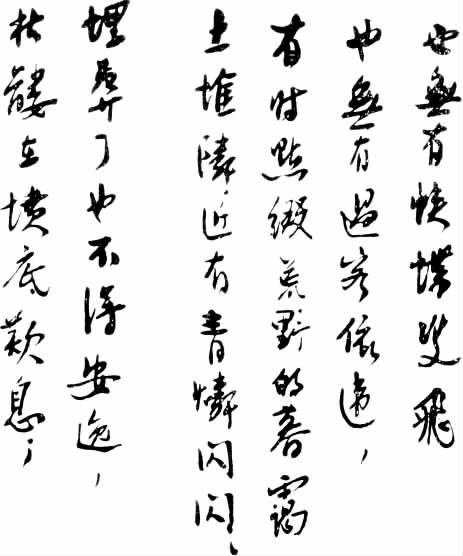 也無有蛺蝶雙飛
也無有過客依違，
有时點綴荒野的暮靄
土堆隣近有青燐閃閃、
埋葬了也不得安逸，
枯髏在墳底歎息；